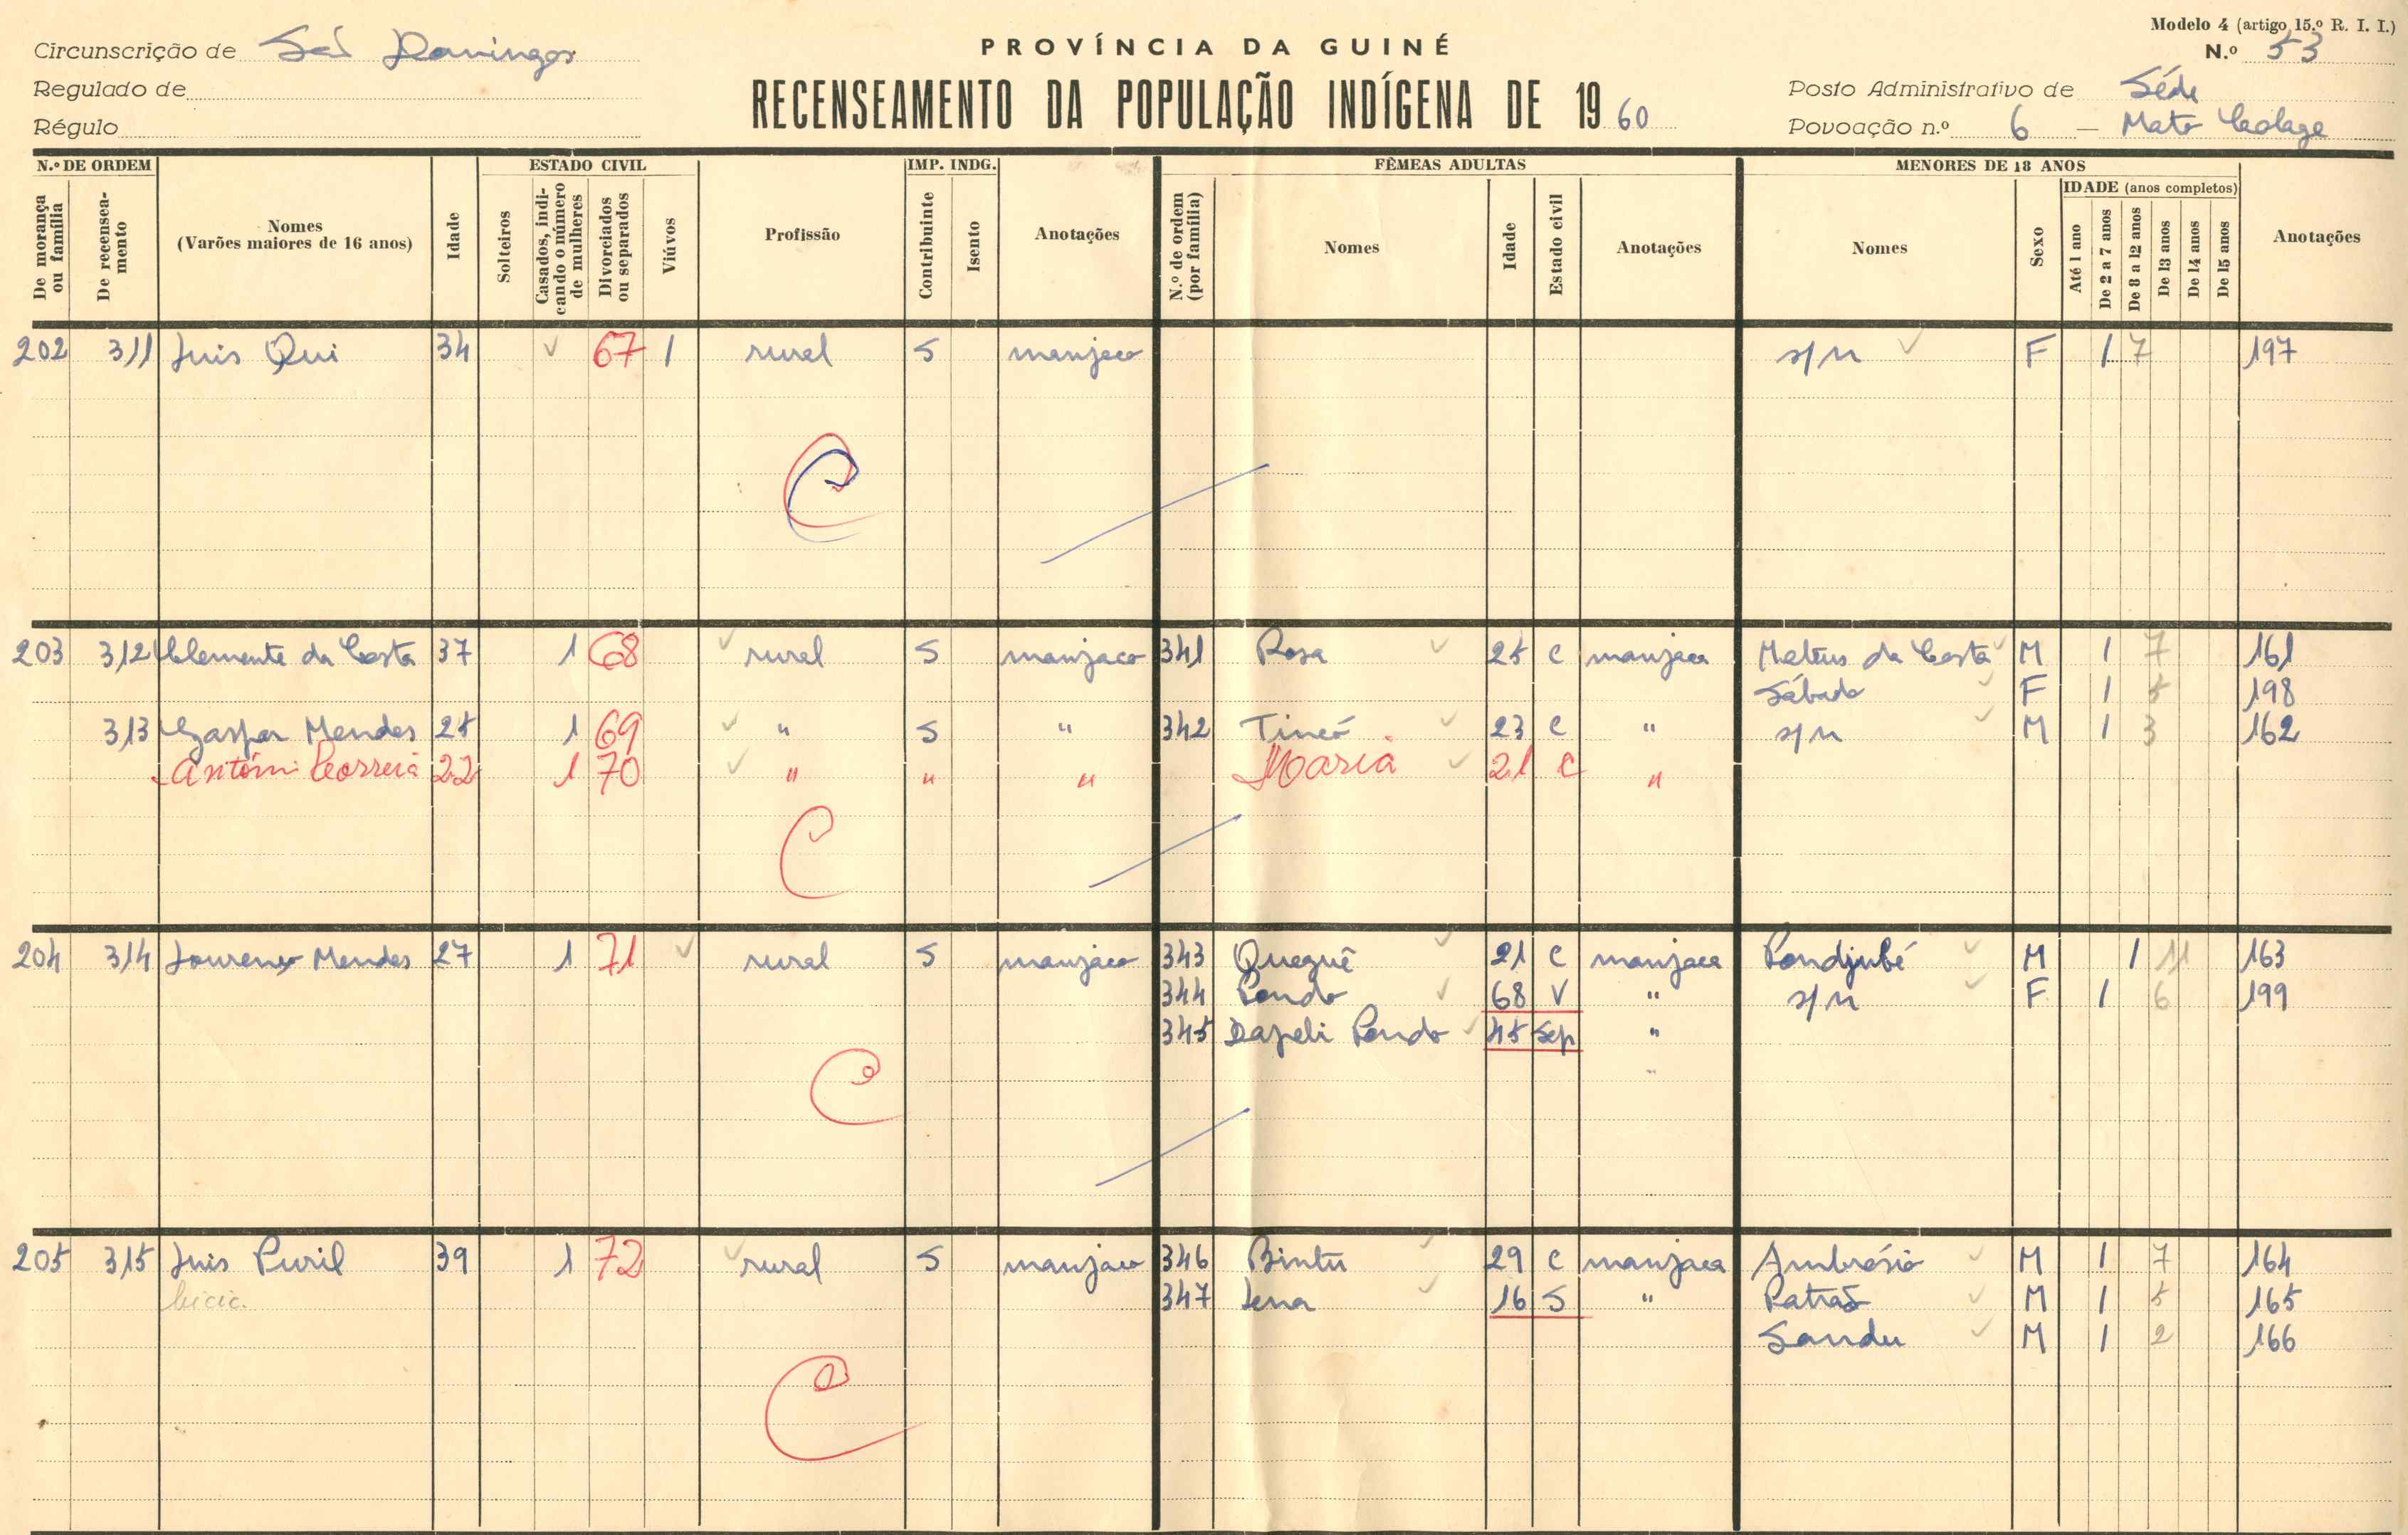 Modelo 4 (artigo 15.º R. I. I.)
Circunscrição de São Domingos
PROVÍNCIA DA GUINÉ
N.º 53
Regulado de
RECENSEAMENTO DA POPULAÇÃO INDÍGENA DE 1960
Posto Administrativo de Séde
Régulo
Povoação n.º 6 - Mato
N.º DE ORDEM
ESTADO CIVIL
IMP. INDG.
FÊMEAS ADULTAS
MENORES DE 18 ANOS
De morança ou família
De recenseamento
Nomes (Varões maiores de 16 anos)
Idade
Solteiros
Casados, indicando o número de mulheres
Divorciados ou separados
Viúvos
Profissão
Contribuinte
Isento
Anotações
N.º de ordem (por família)
Nomes
Idade
Estado civil
Anotações
Nomes
Sexo
IDADE (anos completos)
Até 1 ano
De 2 a 7 anos
De 8 a 12 anos
De 13 anos
De 14 anos
De 15 anos
Anotações
202 311 Luis Qui 34 67 1 rural S manjaco s/n F 1 7 197
C
203 312 Clemente da Costa 37 1 68 rural S manjaco 341 Rosa 25 C manjaca Mateus da Costa M 1 7 161
Sábado F 1 5 198
313 Gaspar Mendes 25 1 69 " S " 342 Tincó 23 C " s/n M 1 3 162
António Correia 22 1 70 " " " Maria 21 C "
C
204 314 Lourenço Mendes 27 1 71 rural S manjaco 343 Queguê 21 C manjaca Pondjubé M 1 11 163
344 Pondo 68 V " s/n F 1 6 199
345 Dapeli Pondo 45 Sep "
"
C
205 315 Luis Puril 39 1 72 rural S manjaco 346 Bintu 29 C manjaca Ambrósio M 1 7 164
bicic. 347 Lena 16 S " Patrão M 1 5 165
Sandu M 1 2 166
C